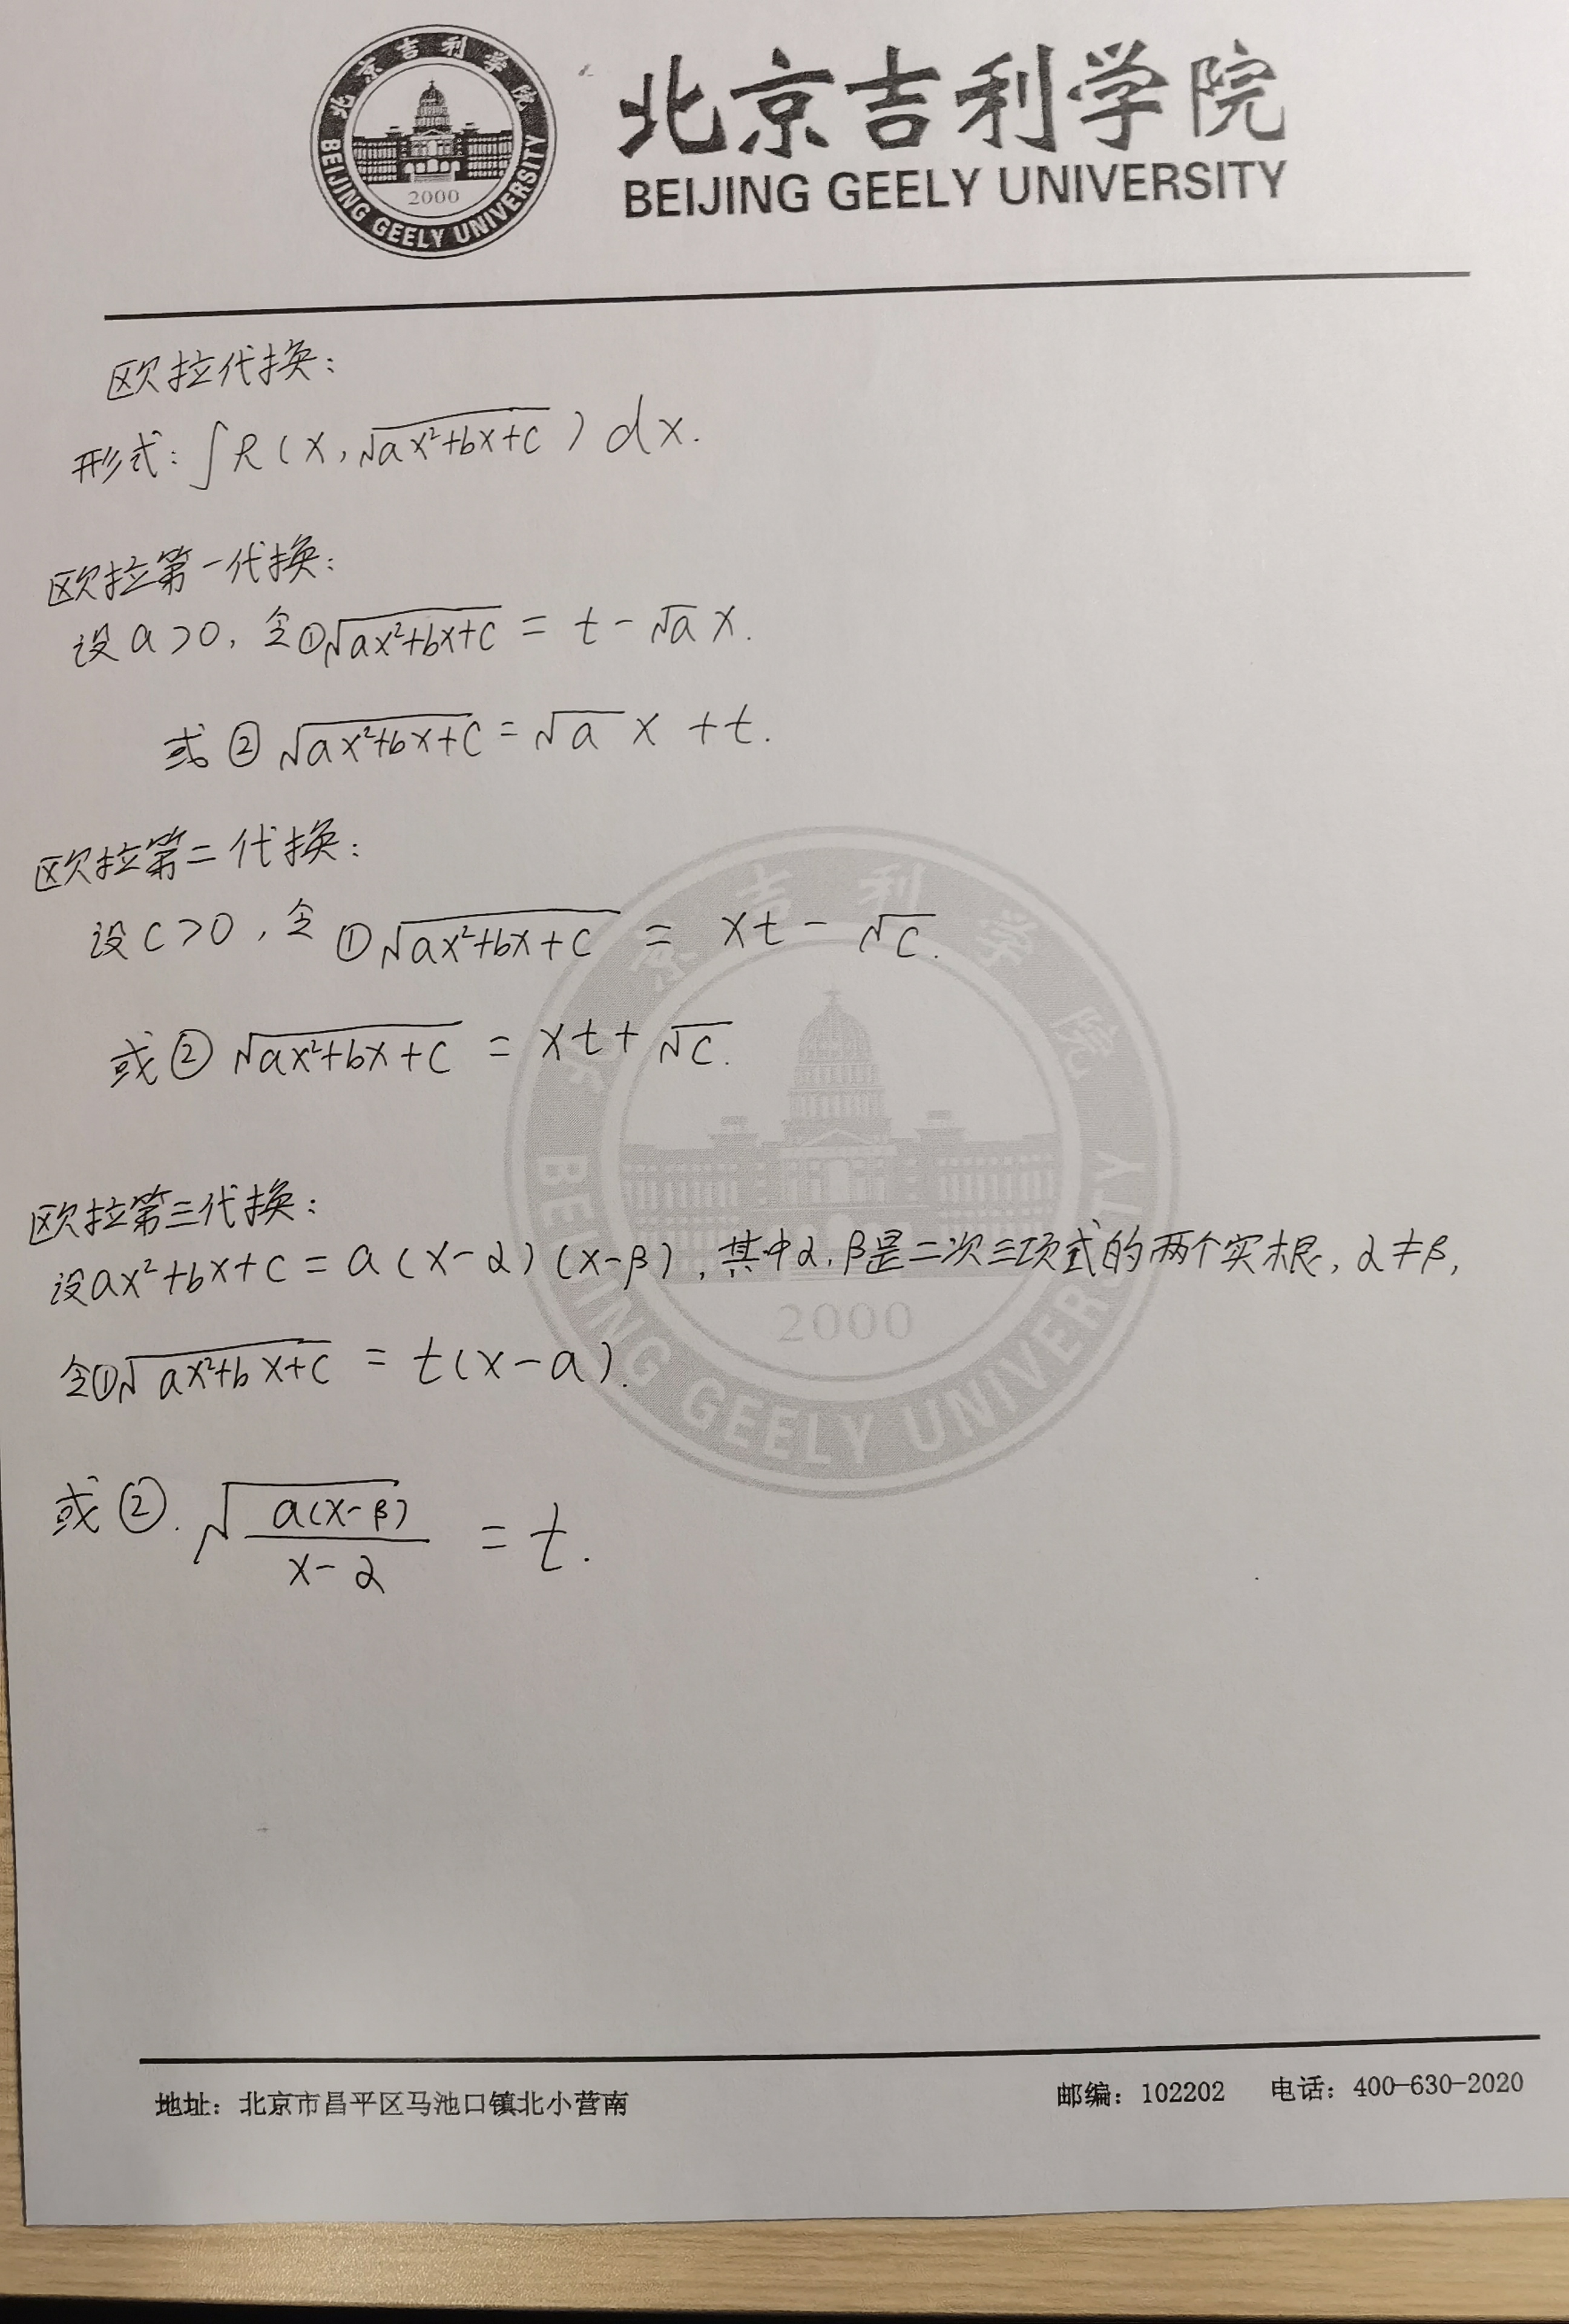 北京吉利学院
BEIJING GEELY UNIVERSITY
2000
北京吉利学院
BEIJING GEELY UNIVERSITY
欧拉代换:
形式: ∫R(x, √(ax²+bx+c)) dx.
欧拉第一代换:
设a>0, 令①√(ax²+bx+c) = t-√a x.
或② √(ax²+bx+c) = √a x +t.
欧拉第二代换:
设c>0, 令 ①√(ax²+bx+c) = xt-√c.
或② √(ax²+bx+c) = xt+√c.
欧拉第三代换:
设ax²+bx+c = a(x-α)(x-β), 其中α, β是二次三项式的两个实根, α≠β,
令①√(ax²+bx+c) = t(x-a).
或②. √(a(x-β)/(x-α)) = t.
京吉利学院
BEIJING GEELY UNIVERSITY
2000
地址: 北京市昌平区马池口镇北小营南 邮编: 102202 电话: 400-630-2020